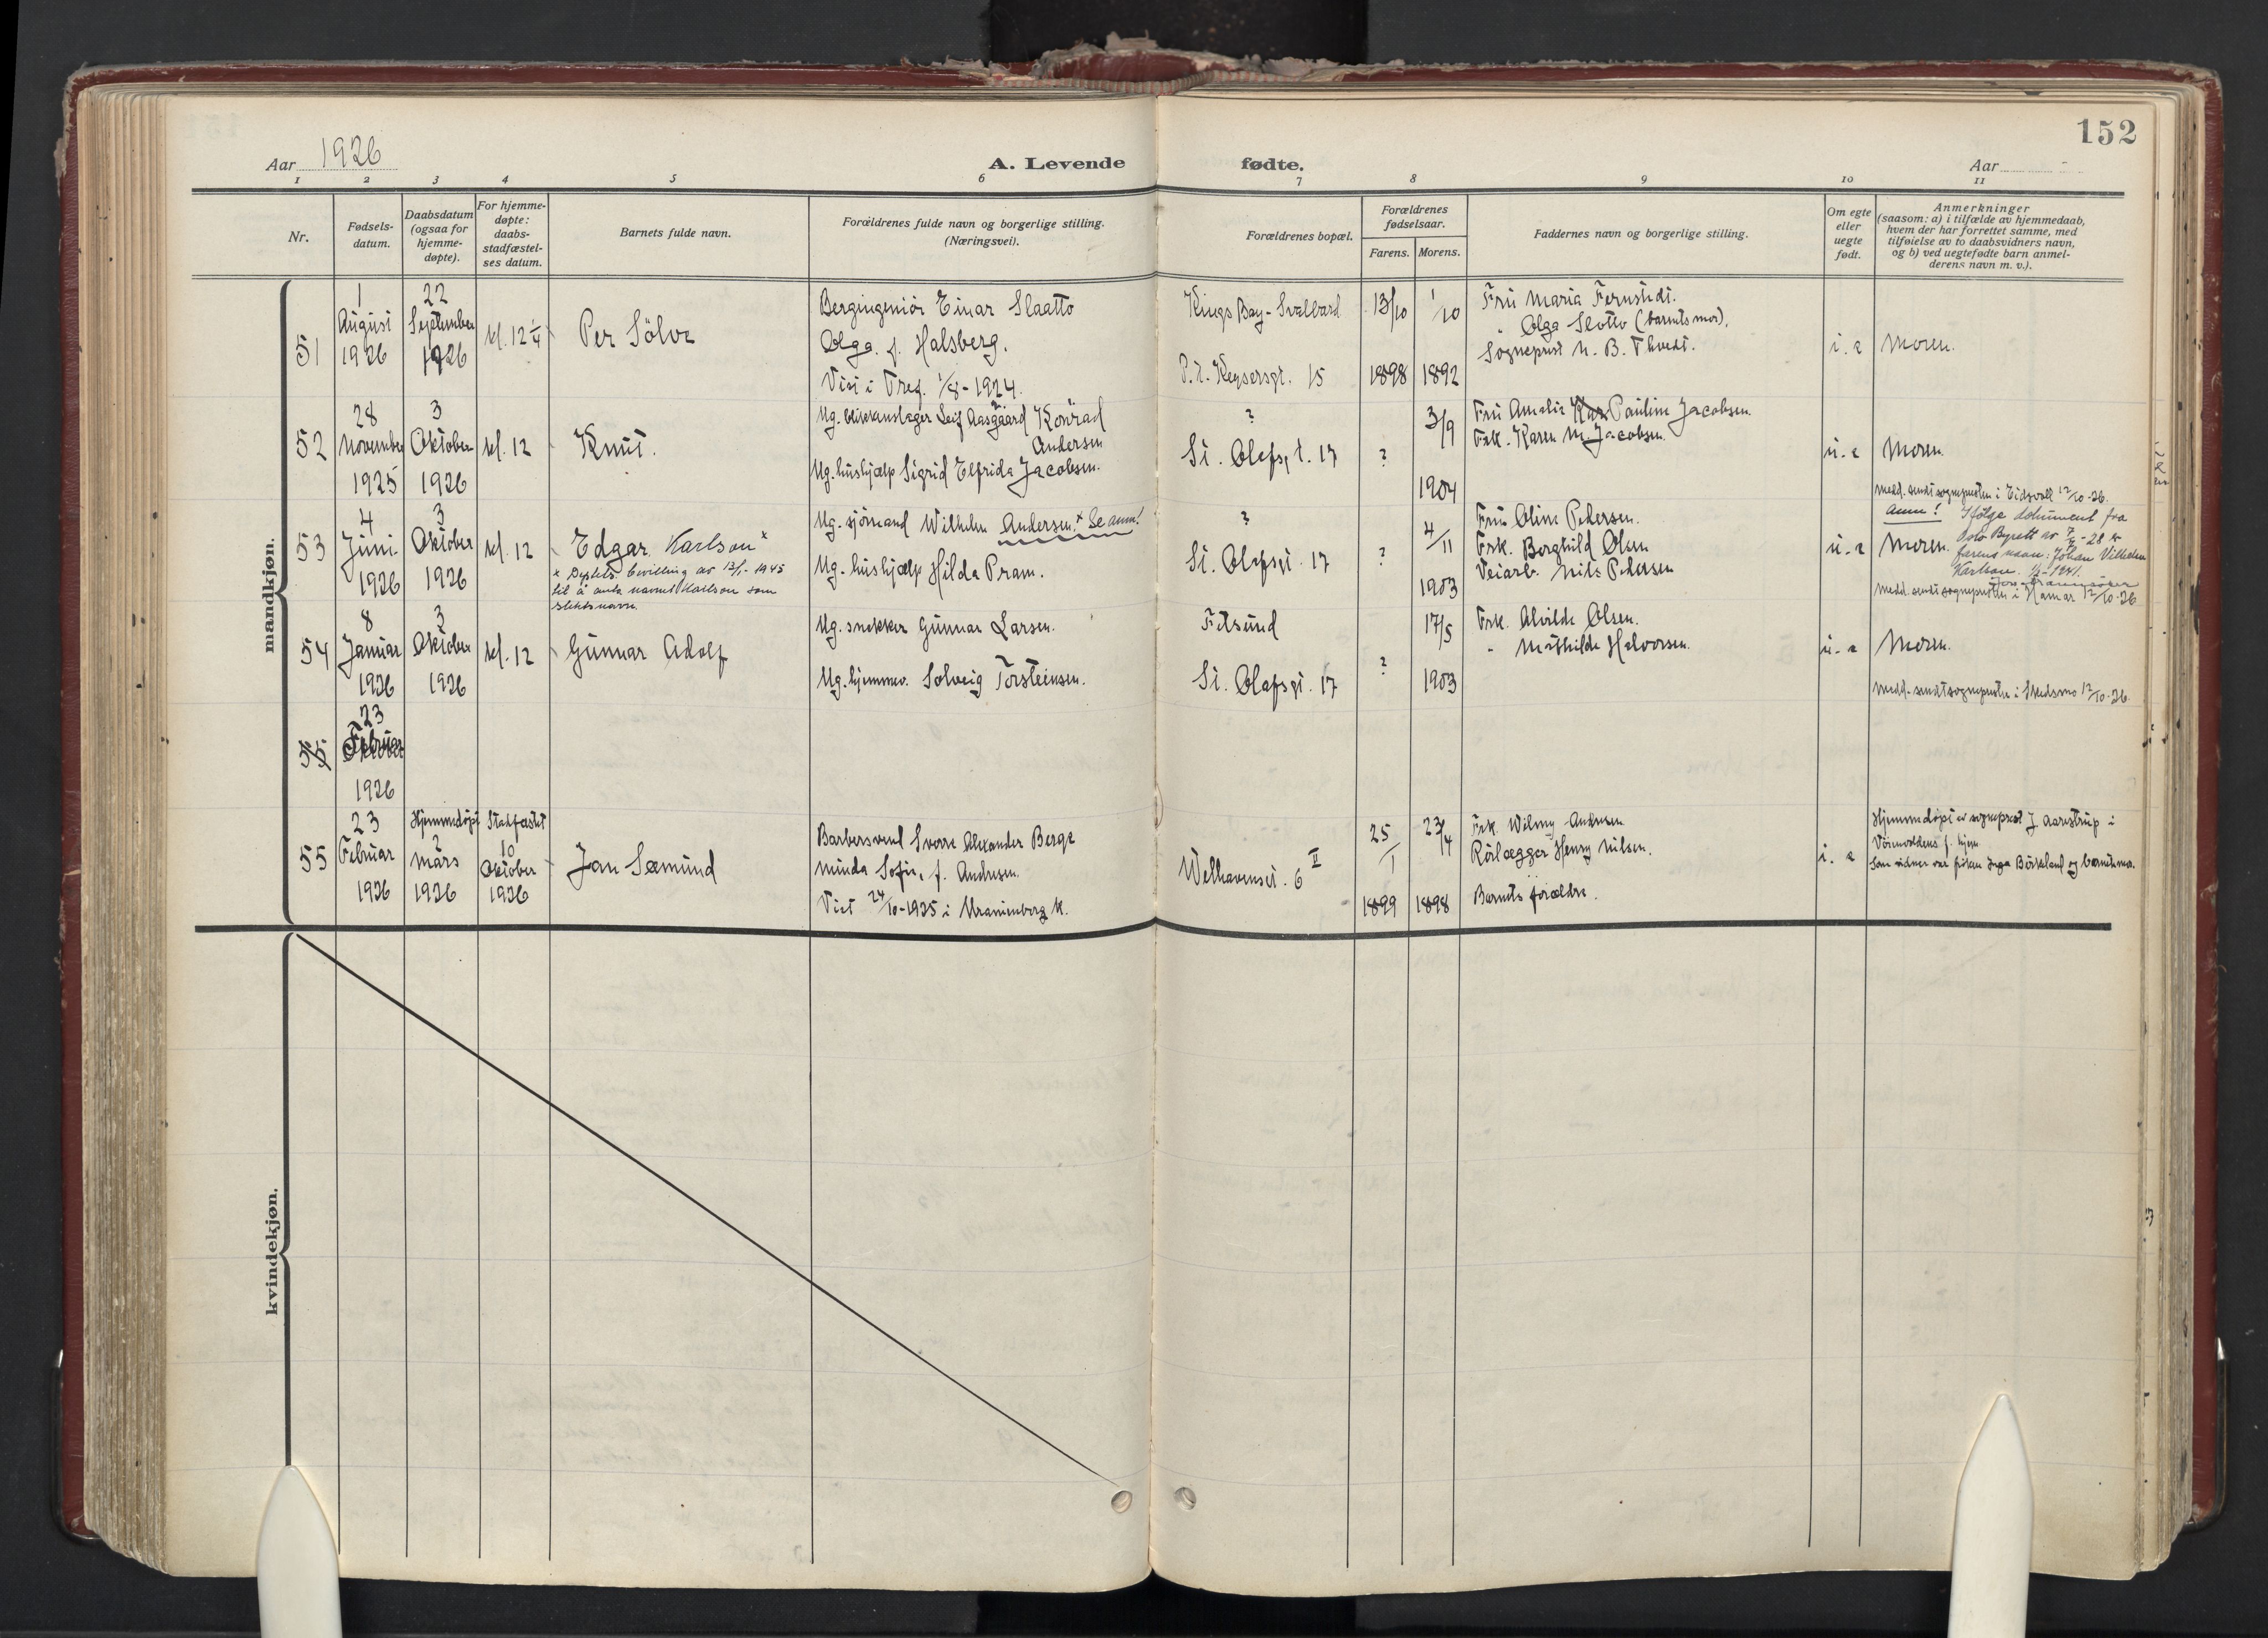 152
Aar 1926
A. Levende fødte.
Aar
1 2 3 4 5 6 7 8 9 10 11
Nr.
Fødsels-
datum.
Daabsdatum
(ogsaa for
hjemme-
døpte).
For hjemme-
døpte:
daabs-
stadfæstel-
ses datum.
Barnets fulde navn.
Forældrenes fulde navn og borgerlige stilling.
(Næringsvei).
Forældrenes bopæl.
Forældrenes
fødselsaar.
Farens. Morens.
Faddernes navn og borgerlige stilling.
Om egte
eller
uegte
født.
Anmerkninger
(saasom: a) i tilfælde av hjemmedaab,
hvem der har forrettet samme, med
tilføielse av to daabsvidners navn,
og b) ved uegtefødte barn anmel-
derens navn m. v.).
mandkjøn.
51
1
August
1926
22
September
1926
kl. 12 1/4
Per Sölve
Bergingeniör Einar Slaatto
Olga f. Halsberg.
Viet i Tref. 1/8 - 1924.
Kings Bay - Svalbard
P.t. Keysersgt. 15
13/10
1898
1/10
1892
Fru Maria Fernstedt.
" Olga Slotto (barnets mor).
Sogneprest N. B. Thvedt.
i. e
Moren.
52
28
November
1925
3
Oktober
1926
kl. 12
Knut.
Ug. blikkenslager Leif Aasgaard Konrad
Andersen
Ug. hushjælp Sigrid Elfrida Jacobsen.
?
St. Olafsgt. 17
?
3/9
1904
Fru Amalie Pauline Jacobsen.
Frk. Karen M. Jacobsen.
u. e
Moren.
medd. sendt sognepresten i Eidsvoll 12/10-26.
53
4
Juni
1926
3
Oktober
1926
kl. 12
Edgar Karlson x
x Deptets bevilling av 13/1-1945
til å anta navnet Karlson som
slektsnavn.
Ug. sjömand Wilhelm Andersen. x Se anm!
Ug. hushjælp Hilda Pram.
?
St. Olafsgt. 17
?
4/11
1903
Fru Oline Pedersen.
Frk. Berghild Olsen
Veiarb. Nils Pedersen
u. e
Moren.
Anm! Ifölge dokument fra
Oslo Byrett av 7/2-28 er
farens navn: Johan Vilhelm
Karlson. 1/2-1941.
medd. sendt sognepresten i Hamar 12/10-26
54
8
Januar
1926
3
Oktober
1926
kl. 12
Gunnar Adolf
Ug. snekker Gunnar Larsen.
Ug. hjemmev. Solveig Torsteinsen.
Fetsund
St. Olafsgt. 17
?
17/5
1903
Frk. Alvilde Olsen.
" Mathilde Halvorsen.
u. e
Moren.
medd. sendt sognepresten i Skedsmo 12/10-26.
55
23
Februar
1926
55
23
Februar
1926
Hjemmedöpt
2
mars
1926
Stadfæstet
10
Oktober
1926
Jan Sæmund
Barbersvend Sverre Alexander Berge
Minda Sofie, f. Andresen.
Viet 24/10-1925 i Uranienborg K.
Welhavensgt. 6 II
25/1
1899
23/4
1898
Frk. Wilmy Andresen
Rörlægger Henry Nilsen.
Barnets forældre.
i. e
Hjemmedöpt av sogneprest J. Aarestrup i
f. hjem
Som vidner var fröken Inga Börkeland og barnets mor.
kvindekjøn.